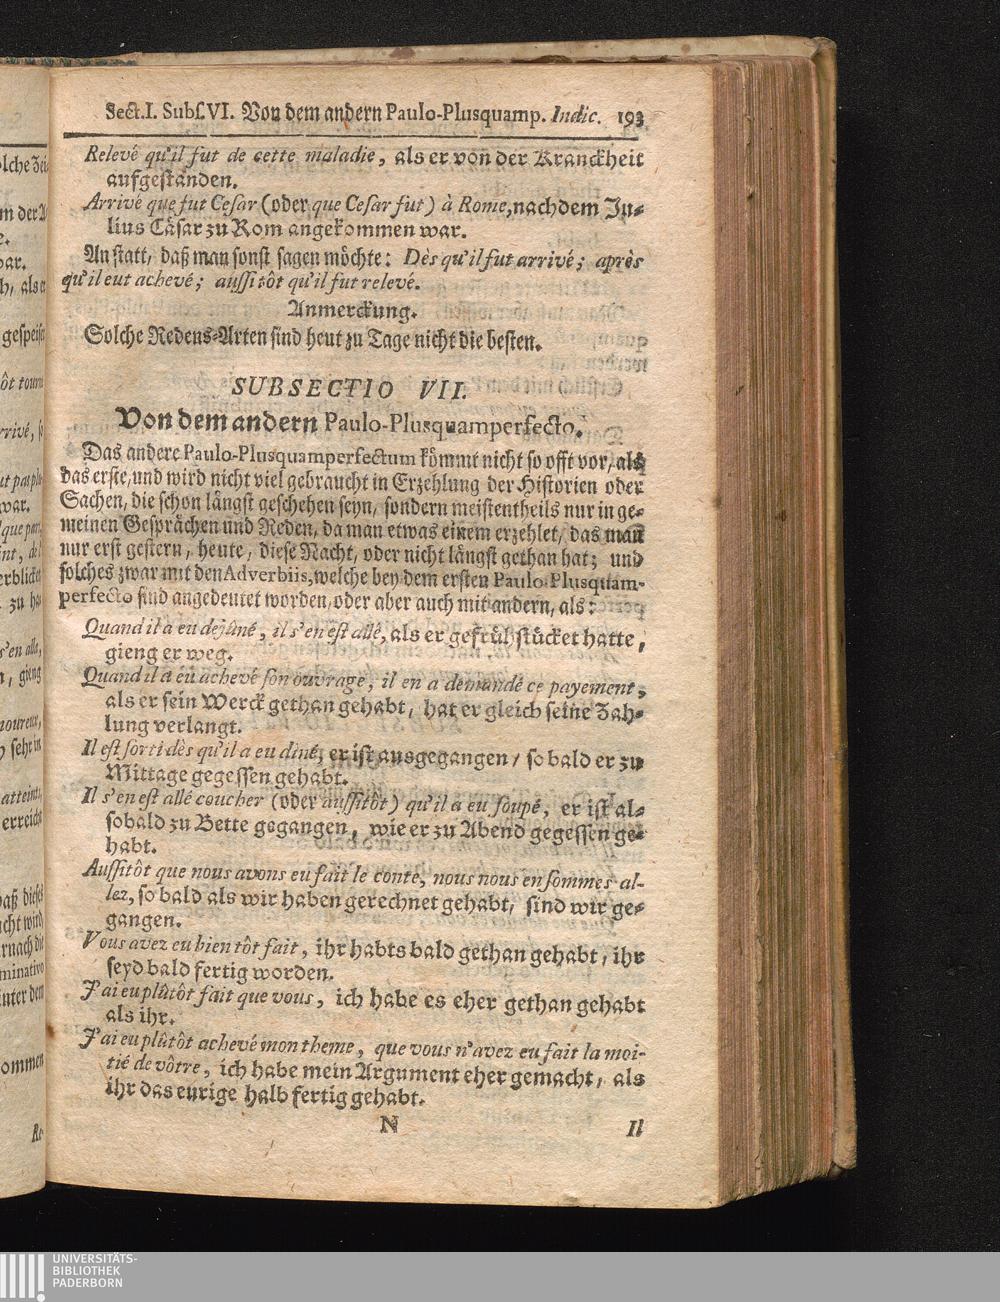 Sect. I. Subs. VI. Von dem andern Paulo-Plusquamp. Indic. 193
Relevé qu'il fut de cette maladie, als er von der Kranckheit
aufgestanden.
Arrivé que fut Cesar (oder que Cesar fut) à Rome, nachdem Ju-
lius Cäsar zu Rom angekommen war.
Anstatt, daß man sonst sagen möchte: Dès qu'il fut arrivé; après
qu'il eut achevé; aussitôt qu'il fut relevé.
Anmerckung.
Solche Redens-Arten sind heut zu Tage nicht die besten.
SUBSECTIO VII.
Von dem andern Paulo-Plusquamperfecto.
Das andere Paulo-Plusquamperfectum kömmt nicht so offt vor, als
das erste, und wird nicht viel gebraucht in Erzehlung der Historien oder
Sachen, die schon längst geschehen seyn, sondern meistentheils nur in ge-
meinen Gesprächen und Reden, da man etwas einem erzehlet, das man
nur erst gestern, heute, diese Nacht, oder nicht längst gethan hat; und
solches zwar mit den Adverbiis, welche bey dem ersten Paulo-Plusquam-
perfecto sind angedeutet worden, oder aber auch mit andern, als:
Quand il a eu dejûné, il s'en est allé, als er gefrühstücket hatte,
gieng er weg.
Quand il a eu achevé son ouvrage, il en a demandé ce payement,
als er sein Werck gethan gehabt, hat er gleich seine Zah-
lung verlangt.
Il est sorti dès qu'il a eu diné, er ist ausgegangen / so bald er zu
Mittage gegessen gehabt.
Il s'en est allé coucher (oder aussitôt) qu'il a eu soupé, er ist al-
sobald zu Bette gegangen, wie er zu Abend gegessen ge-
habt.
Aussitôt que nous avons eu fait le conte, nous nous en sommes al-
lez, so bald als wir haben gerechnet gehabt, sind wir ge-
gangen.
Vous avez eu bien tôt fait, ihr habts bald gethan gehabt, ihr
seyd bald fertig worden.
J'ai eu plûtôt fait que vous, ich habe es eher gethan gehabt
als ihr.
J'ai eu plûtôt achevé mon theme, que vous n'avez eu fait la moi-
tié de vôtre, ich habe mein Argument eher gemacht, als
ihr das eurige halb fertig gehabt.
N Il
UNIVERSITÄTS-
BIBLIOTHEK
PADERBORN